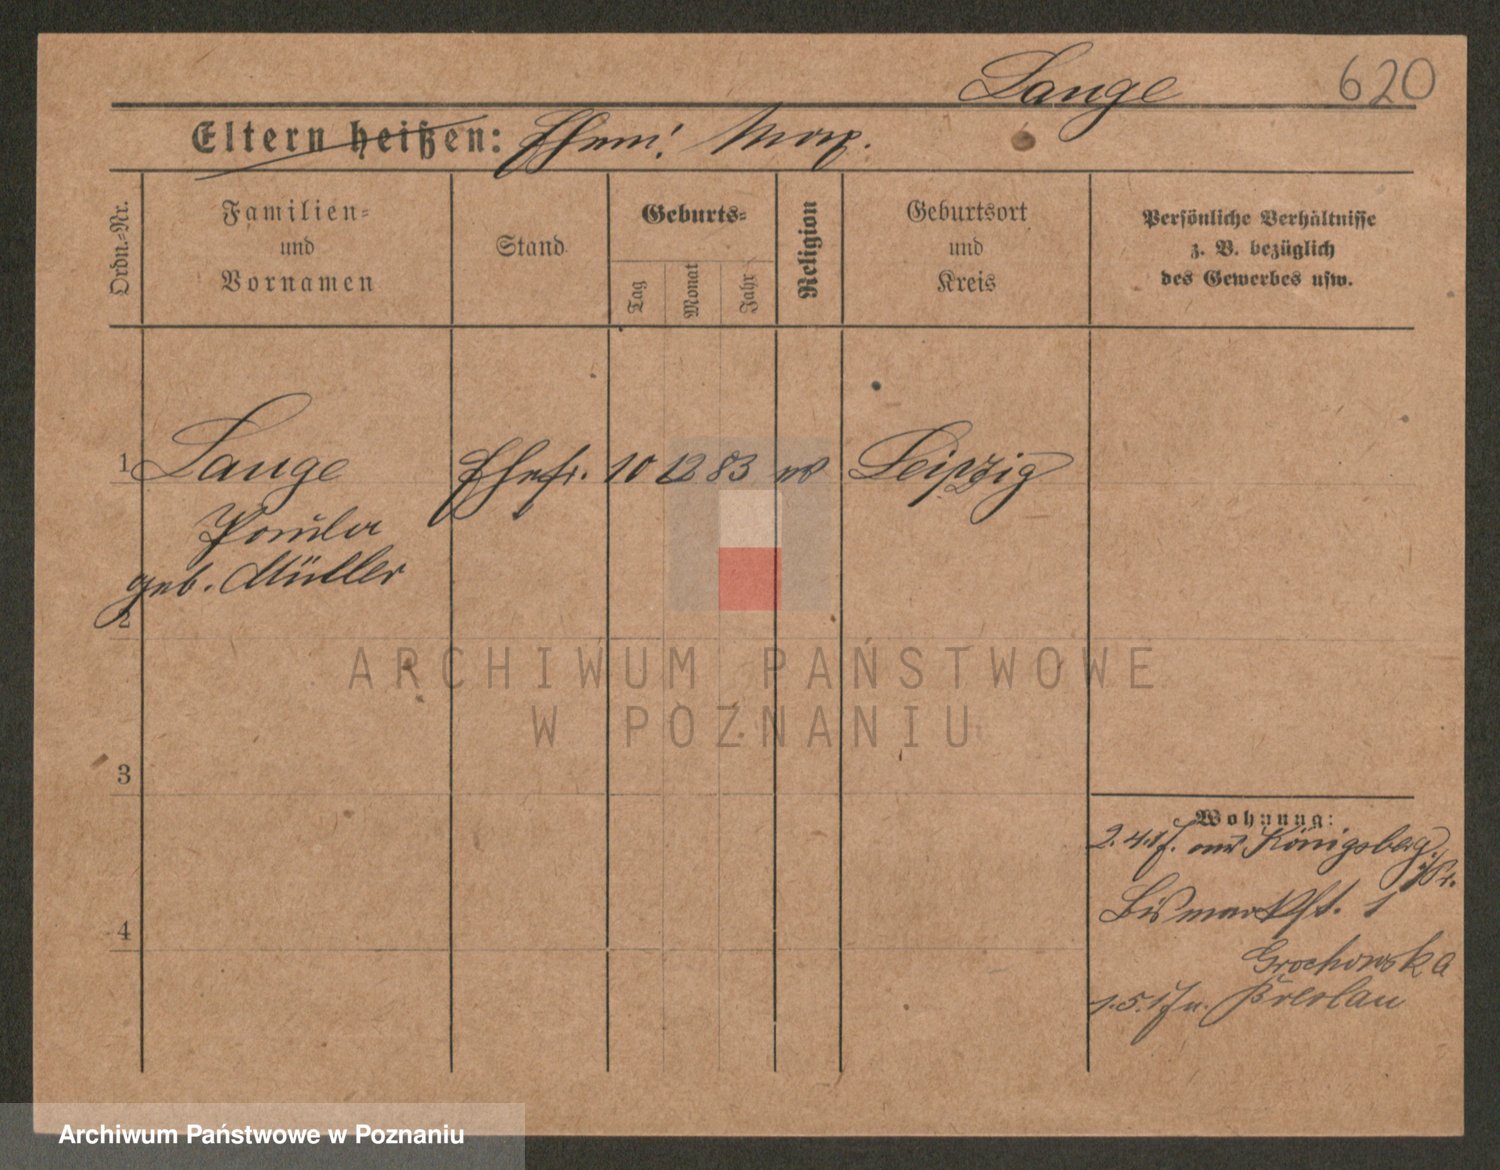 Lange 620
Eltern heißen: Ehem: Max.
Ordn.-Nr.
Familien-
und
Vornamen
Stand
Geburts-
Tag
Monat
Jahr
Religion
Geburtsort
und
Kreis
Persönliche Verhältnisse
z. B. bezüglich
des Gewerbes usw.
1 Lange Ehefr. 10 12 83 Leipzig
Paula
geb. Müller
2
3
4
Wohnung:
2.4.17. Königsberg
i/Pr.
Bismarkst. 1
Grochowska
1.5.17 n. Breslau
ARCHIWUM PAŃSTWOWE
W POZNANIU
Archiwum Państwowe w Poznaniu